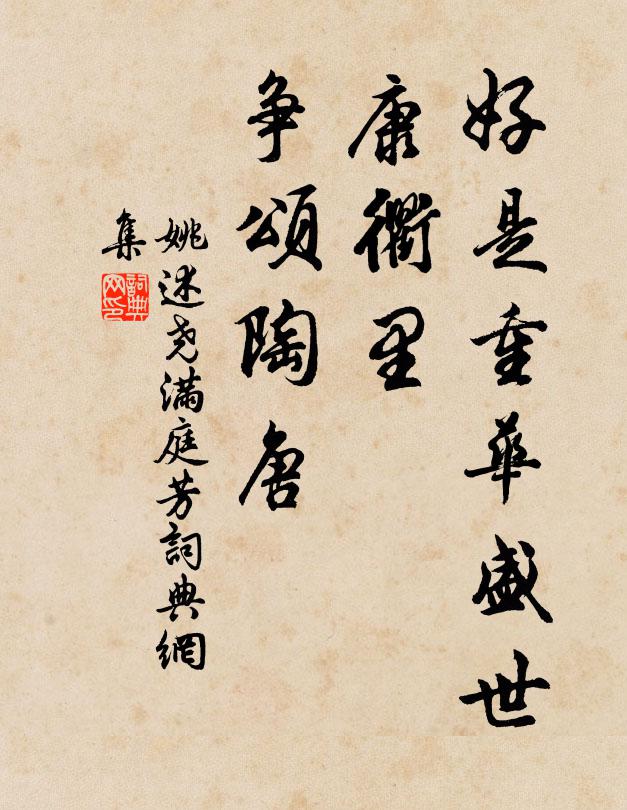 好是重華盛世
康衢里
争頌陶唐
姚述尧滿庭芳詞典網
集
詞典网印